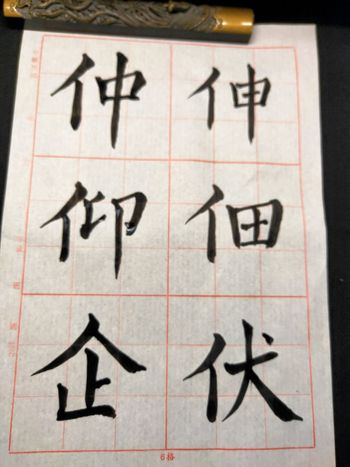 仲 伸
仰 佃
企 伏
6格